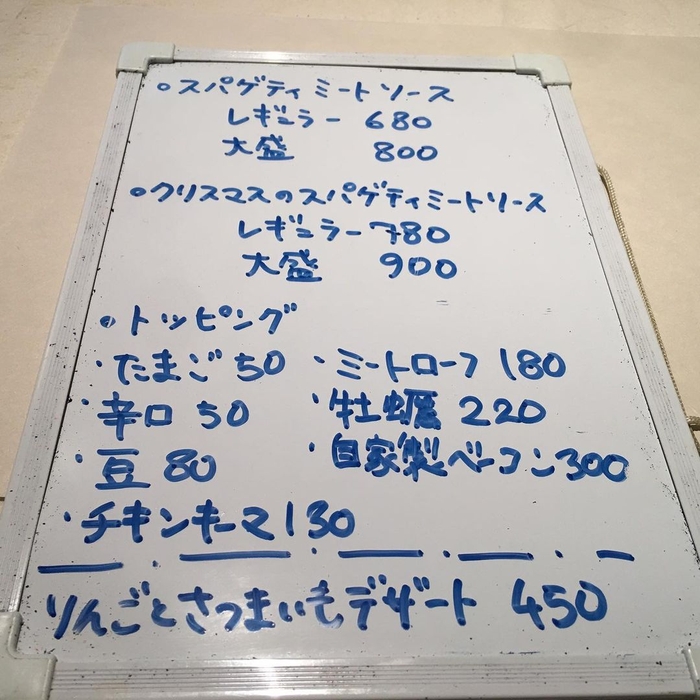 ○スパゲティ ミートソース
レギュラー 680
大盛 800
○クリスマスのスパゲティミートソース
レギュラー 780
大盛 900
○トッピング
・たまご 50 ・ミートローフ 180
・辛口 50 ・牡蠣 220
・豆 80 ・自家製ベーコン300
・チキンキーマ130
りんごとさつまいもデザート 450